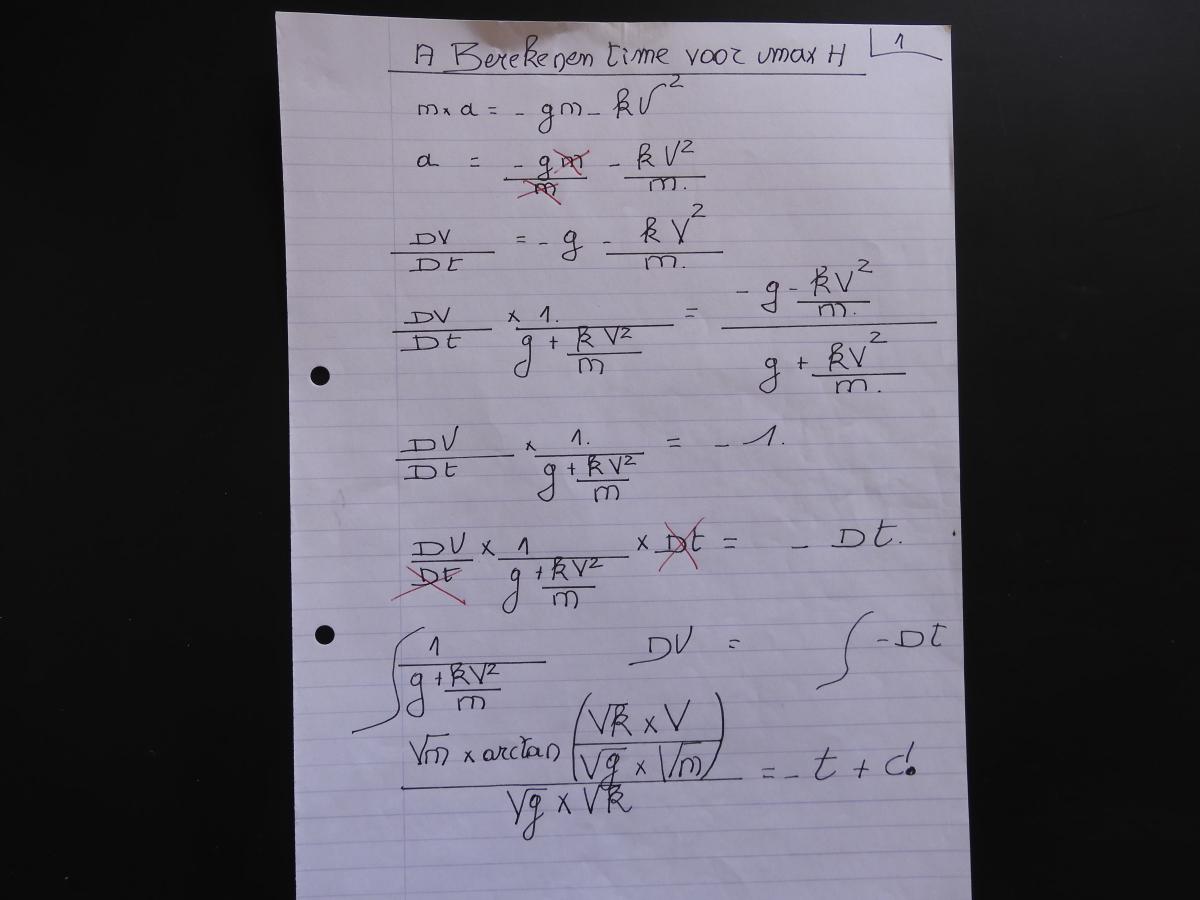 A Berekenen time voor vmax H
1
m × a = - gm - kV²
a = - gm/m - kV²/m.
DV/Dt = - g - kV²/m.
DV/Dt × 1./(g + kV²/m) = (- g - kV²/m.)/(g + kV²/m.)
DV/Dt × 1./(g + kV²/m) = - 1.
DV/Dt × 1/(g + kV²/m) × Dt = - Dt.
∫ 1/(g + kV²/m) DV = ∫ -Dt
(√m × arctan ((√k × V)/(√g × √m)))/(√g × √k) = - t + C!